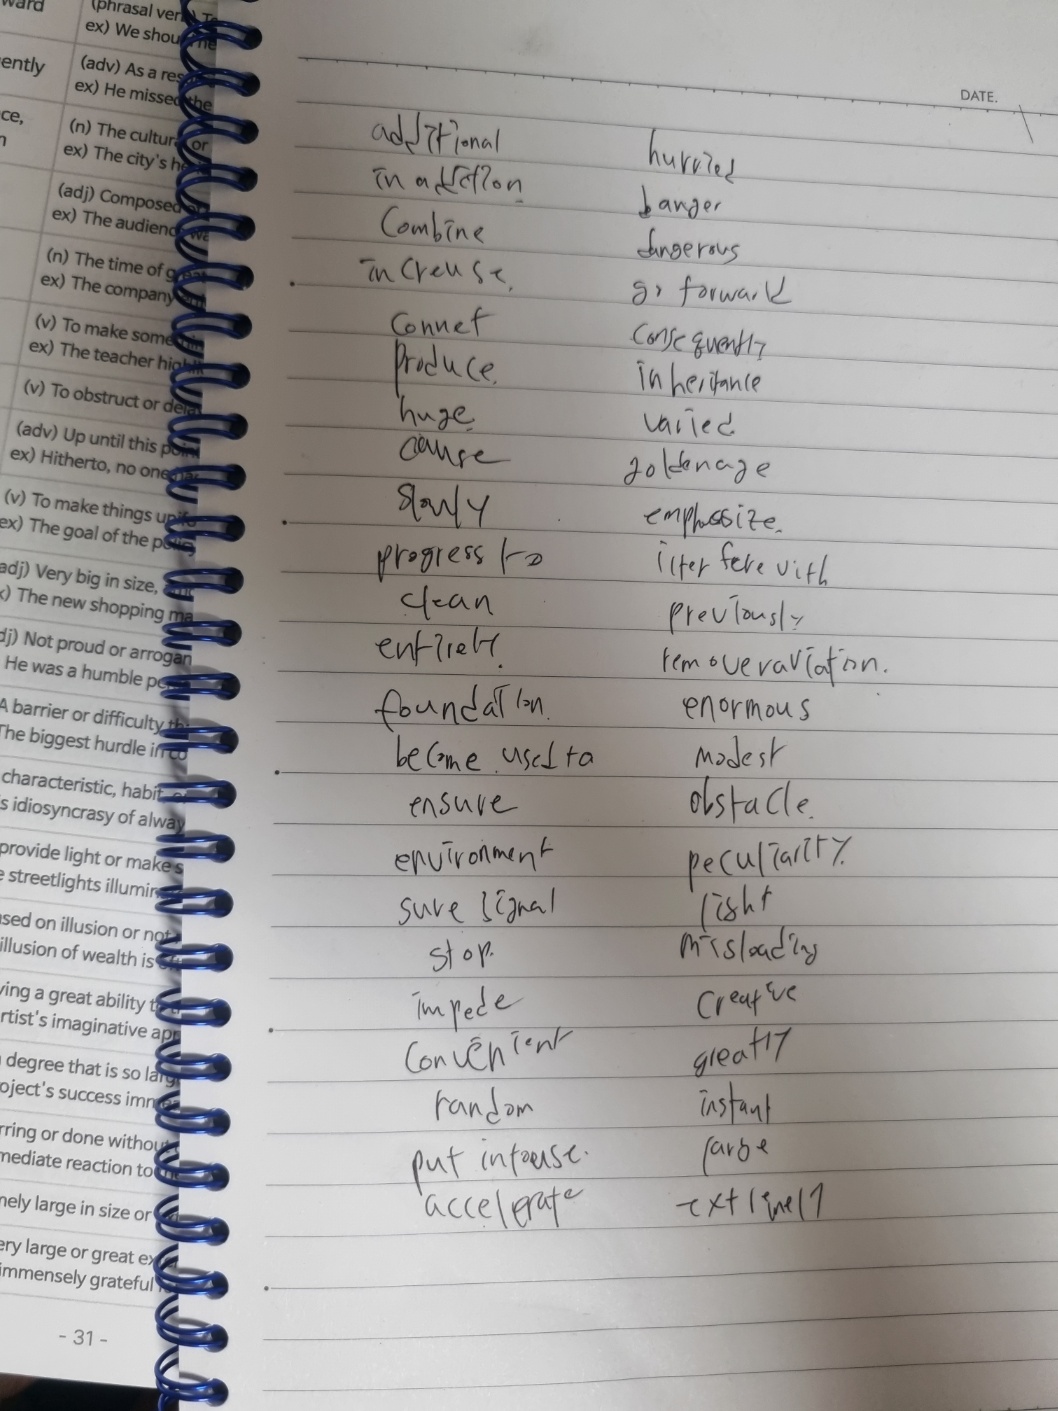 ward
(phrasal ver
ex) We shou
ently
(adv) As a res
ex) He missed the
ce,
(n) The cultur or
ex) The city's he
(adj) Composed
ex) The audienc
(n) The time of
ex) The company
(v) To make some
ex) The teacher high
(v) To obstruct or dela
(adv) Up until this poin
ex) Hitherto, no one
(v) To make things
ex) The goal of the
adj) Very big in size,
x) The new shopping ma
dj) Not proud or arrogan
He was a humble pe
A barrier or difficulty
The biggest hurdle in
characteristic, habit,
s idiosyncrasy of alway
provide light or make s
e streetlights illumin
sed on illusion or not
illusion of wealth is
ying a great ability
rtist's imaginative ap
degree that is so larg
oject's success imm
rring or done withou
mediate reaction to
nely large in size or
ery large or great ex
immensely grateful
- 31 -
DATE.
additional
in addition
Combine
increase.
Connet
produce.
huge
cause
slowly
progress to
clean
entirely.
foundation.
become used to
ensure
environment
sure signal
stop.
impede
convenient
random
put in
accelerate
hurried
danger
dangerous
go forward
consequently
inheritance
varied
goldenage
emphasize.
iterfere with
previously
remove variation.
enormous
modest
obstacle.
peculiarity.
light
misleading
creative
greatly
instant
large